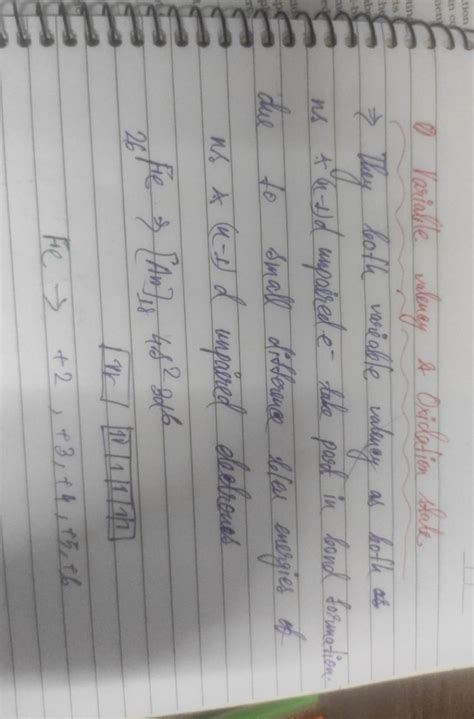 ① Variable valency & Oxidation state,
⇒ They both variable valency as both as
ns & (n-1)d unpaired e⁻ take part in bond formation.
due to small difference b/w energies of
ns & (n-1) d unpaired electrones
₂₆Fe ⇒ [Ar]₁₈ 4s² 3d⁶
1↓ 1↓ 1 1 1 1
Fe → +2, +3, +4, +5, +6